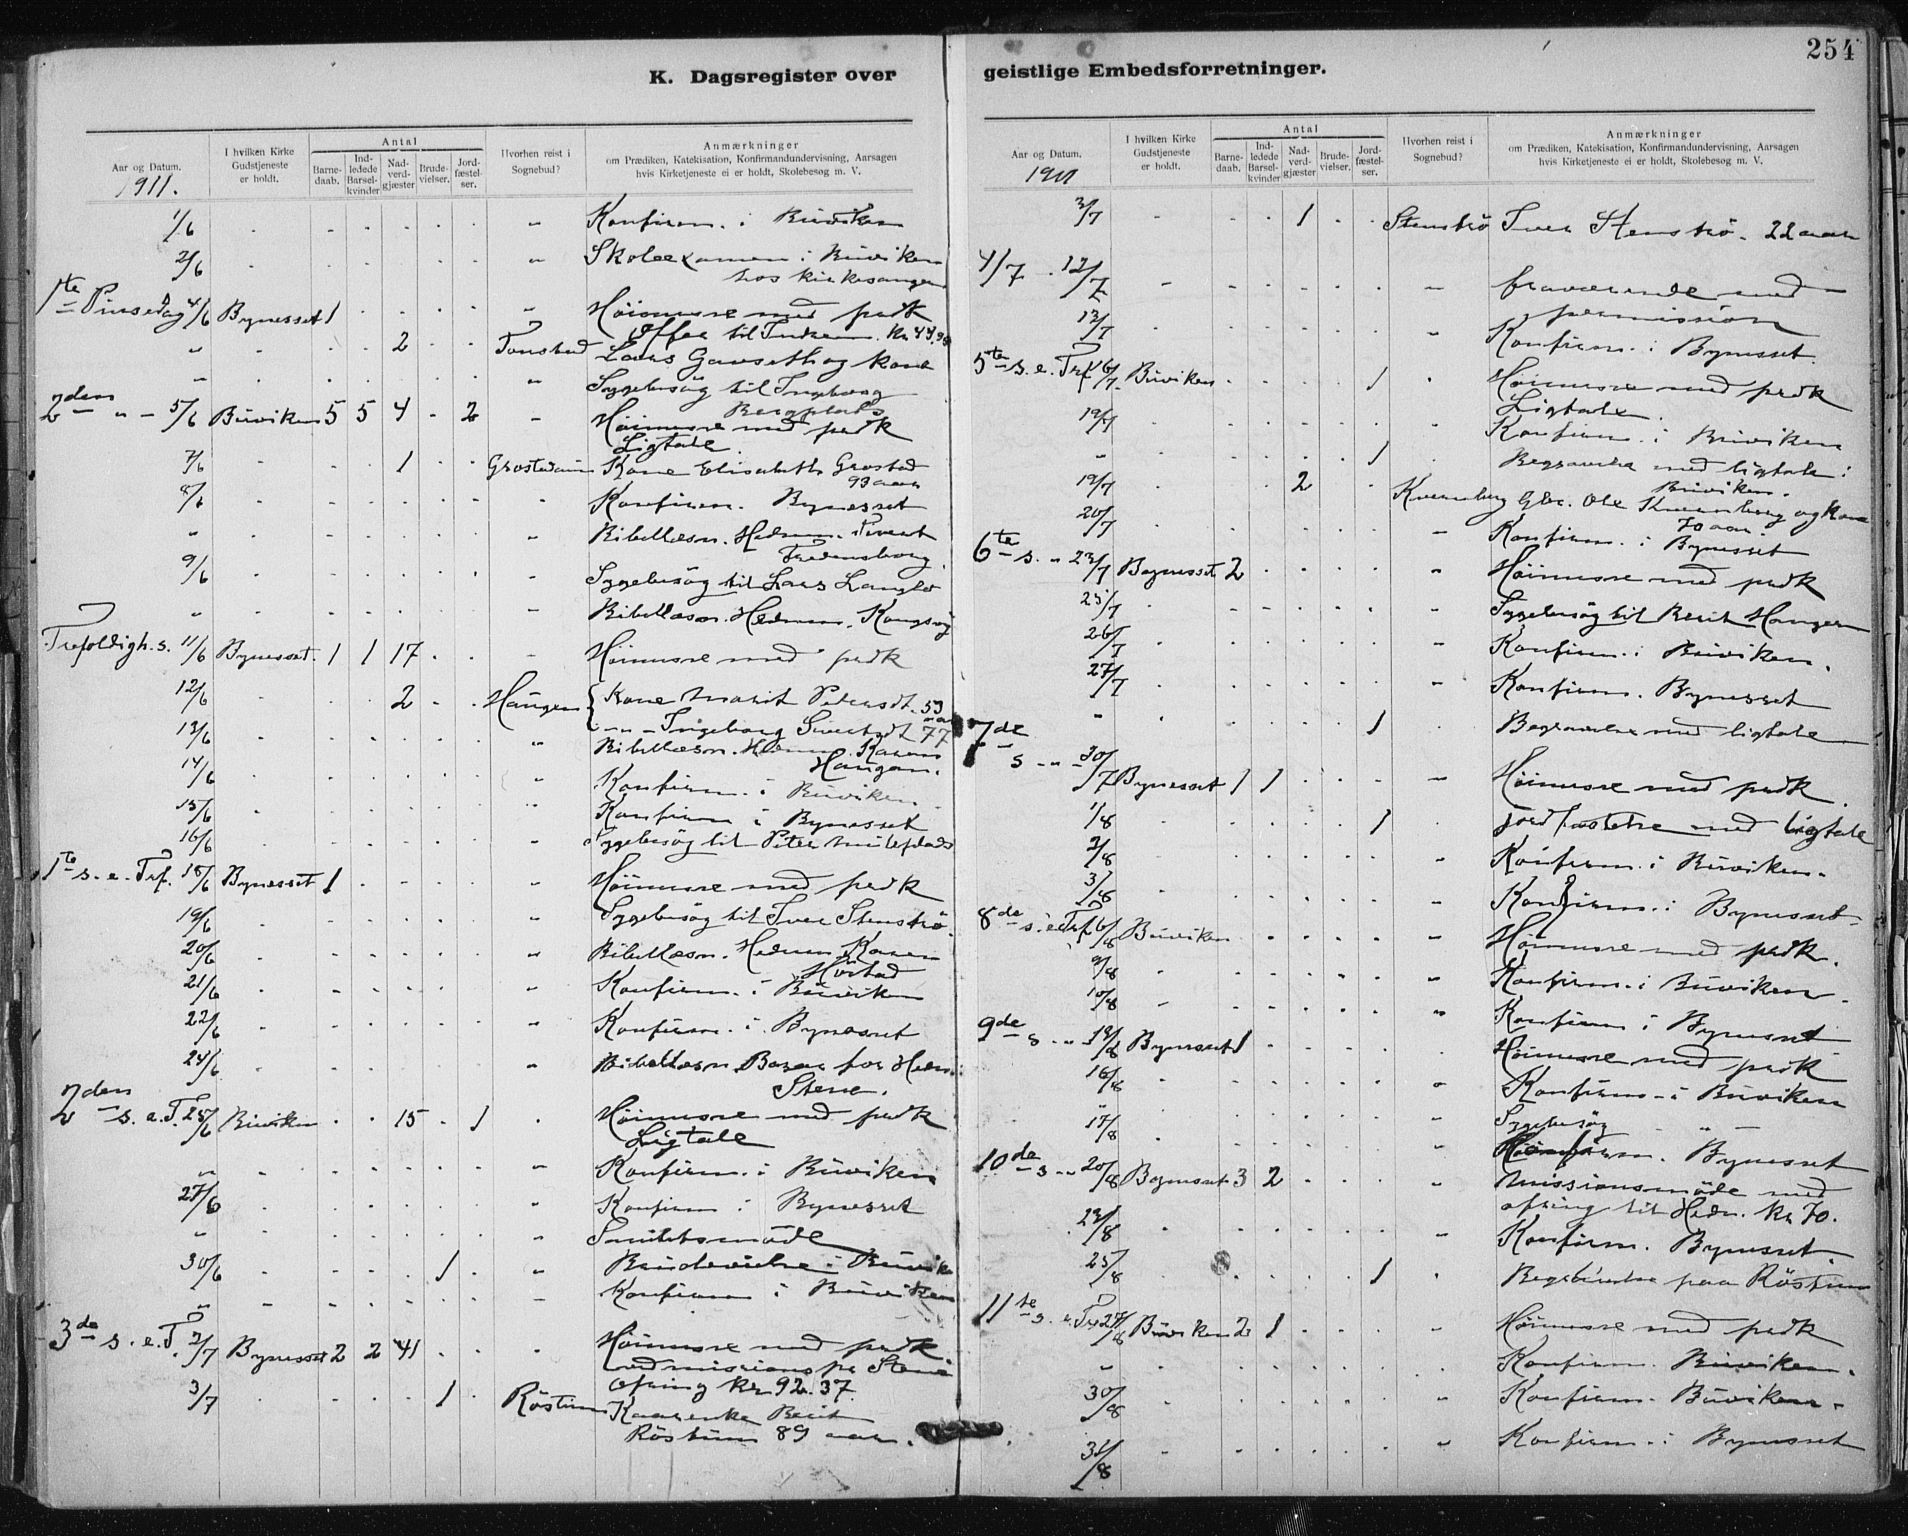 254
K. Dagsregister over geistlige Embedsforretninger.
Aar og Datum.
1911.
I hvilken Kirke Gudstjeneste er holdt.
Antal
Barne-daab.
Ind-ledede Barsel-kvinder
Nad-verd-gjæster
Brude-vielser.
Jord-fæstel-ser.
Hvorhen reist i Sognebud?
Anmærkninger
om Prædiken, Katekisation, Konfirmandundervisning, Aarsagen
hvis Kirketjeneste ei er holdt, Skolebesøg m. V.
1/6 Konfirm. i Büviken
2/6 Skoleexamen i Büviken
hos kirkesanger
1te Pinsedag 4/6 Bynesset 1 Høimesse med prædk
Offer til 
" 2 Tonstad Lars Gaustethog kone
" Sygebesög til Ingeborg
Bergplads
2den " 5/6 Büviken 5 5 4 - 2 Høimesse med prædk
Ligtale.
7/6 1 Kone Elisabeth Grostad
93 aar
8/6 Konfirm. Bynesset
" Bibellæsn. Hedn.
9/6 Sygebesög til Lars Langlo
" Bibellæsn. Hedn.
Trefoldigh. s. 11/6 Bynesset. 1 1 17 Høimesse med prædk
12/6 2 Haugen Kone Marit Petersdt. 53
aar
" " Ingeborg Sivertsdt 77
13/6 Bibellæsn. Hedn. Karen
Haugan.
14/6 Konfirm. i Büviken
15/6 Konfirm i Bynesset
16/6 Sygebesög til Peter
1te s. e. Tref. 18/6 Bynesset 1 Høimesse med prædk
19/6 Sygebesög til Iver Stenstrø.
20/6 Bibellæsn. Hedn. Karen
21/6 Konfirm. i Büviken
22/6 Konfirm. i Bynesset
24/6 Bibellæsn. Basar for Hedn.
Stene.
2den s. e. T. 25/6 Büviken 15 1 Høimesse med prædk
Ligtale
" Konfirm. i Büviken
27/6 Konfirm i Bynesset
"
30/6 1 Brudevielse i Büviken
" Konfirm i Büviken
3de s. e. T. 2/7 Bynesset 2 2 41 Høimesse med prædk.
Ofring Kr. 92.37
3/7 1 Röstum Berit
Röstum 89 aar.
Aar og Datum.
1911
I hvilken Kirke Gudstjeneste er holdt.
Antal
Barne-daab.
Ind-ledede Barsel-kvinder
Nad-verd-gjæster
Brude-vielser.
Jord-fæstel-ser.
Hvorhen reist i Sognebud?
Anmærkninger
om Prædiken, Katekisation, Konfirmandundervisning, Aarsagen
hvis Kirketjeneste ei er holdt, Skolebesøg m. V.
3/7 1 Stenstrø Iver Stenstrø. 22 aar
4/7 - 12/7 fraværende med
permission
13/7 Konfirm. i Bynesset
5te s. e. Tref 16/7 Büviken 1 Høimesse med prædk
Ligtale.
19/7 Konfirm. i Büviken
" 1 Begravelse med ligtale i
Büviken.
19/7 2 Ole og kone
70 aar.
20/7 Konfirm. i Bynesset
6te s. " 23/7 Bynesset 2 Høimesse med prædk
25/7 Sygebesög til Berit Haugen
26/7 Konfirm. i Büviken.
27/7 Konfirm. Bynesset
" 1 Begravelse med ligtale
7de s. " 30/7 Bynesset 1 1 Høimesse med prædk
1/8 1 Jordfæstelse med ligtale
2/8 Konfirm. i Büviken.
3/8 Konfirm. i Bynesset
8de s. e. Tref. 6/8 Büviken Høimesse med prædk.
9/8 Konfirm. i Büviken.
10/8 Konfirm i Bynesset
9de s. " 13/8 Bynesset 1 Høimesse med prædk
16/8 Konfirm. i Büviken
" Sygebesög
17/8 Konfirm. Bynesset
10de s. " 20/8 Bynesset 3 2 Missionsmøde med
ofring til Hedn. Kr. 70.
23/8 Konfirm. Bynesset.
25/8 1 paa Röstum
11te s. e. Tr 27/8 Büviken 2 1 Høimesse med prædk
" Konfirm. Büviken.
30/8 Konfirm. Büviken.
31/8 Konfirm. i Bynesset